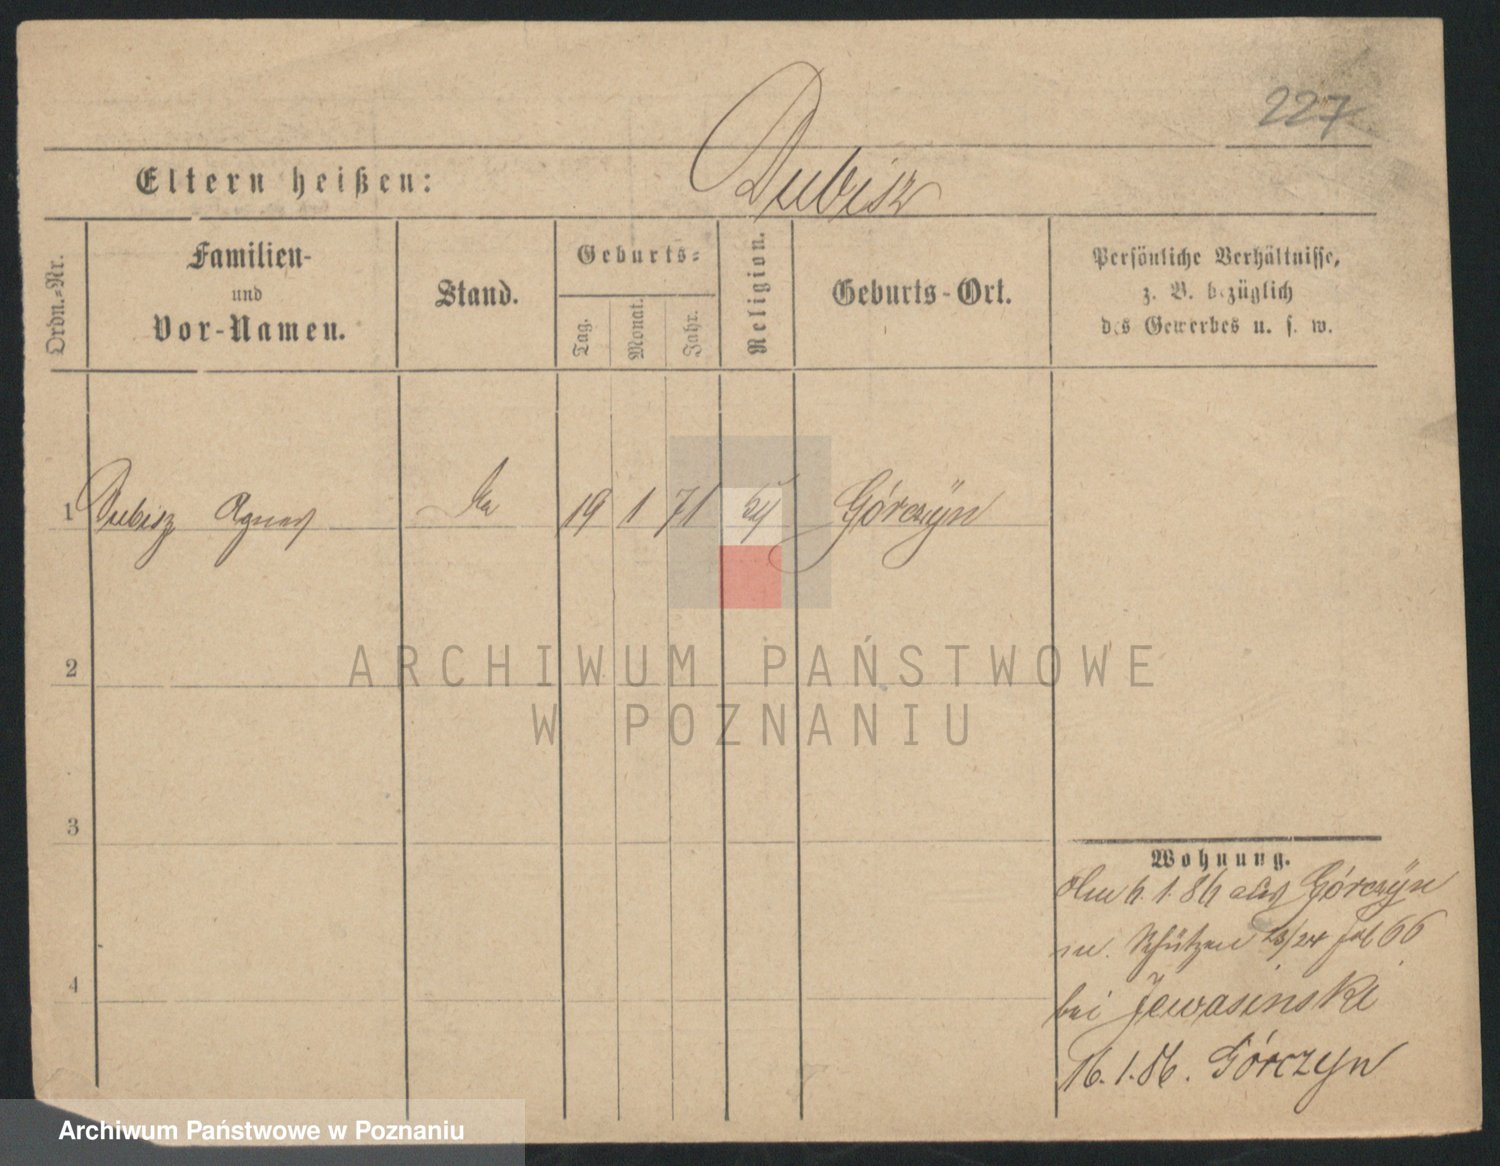 227
Dubisz
Eltern heißen:
Ordn.-Nr.
Familien-
und
Vor-Namen.
Stand.
Geburts-
Tag.
Monat.
Jahr.
Religion.
Geburts-Ort.
Persönliche Verhältnisse,
z. B. bezüglich
des Gewerbes u. s. w.
1 Dubisz Agnes 19 1 71 Górczÿn
2
3
4
Wohnung.
6.1.86 aus Górczÿn
Schützen 23/24 66
bei Jewasinski
16.1.86. Górczyn
ARCHIWUM PAŃSTWOWE
W POZNANIU
Archiwum Państwowe w Poznaniu